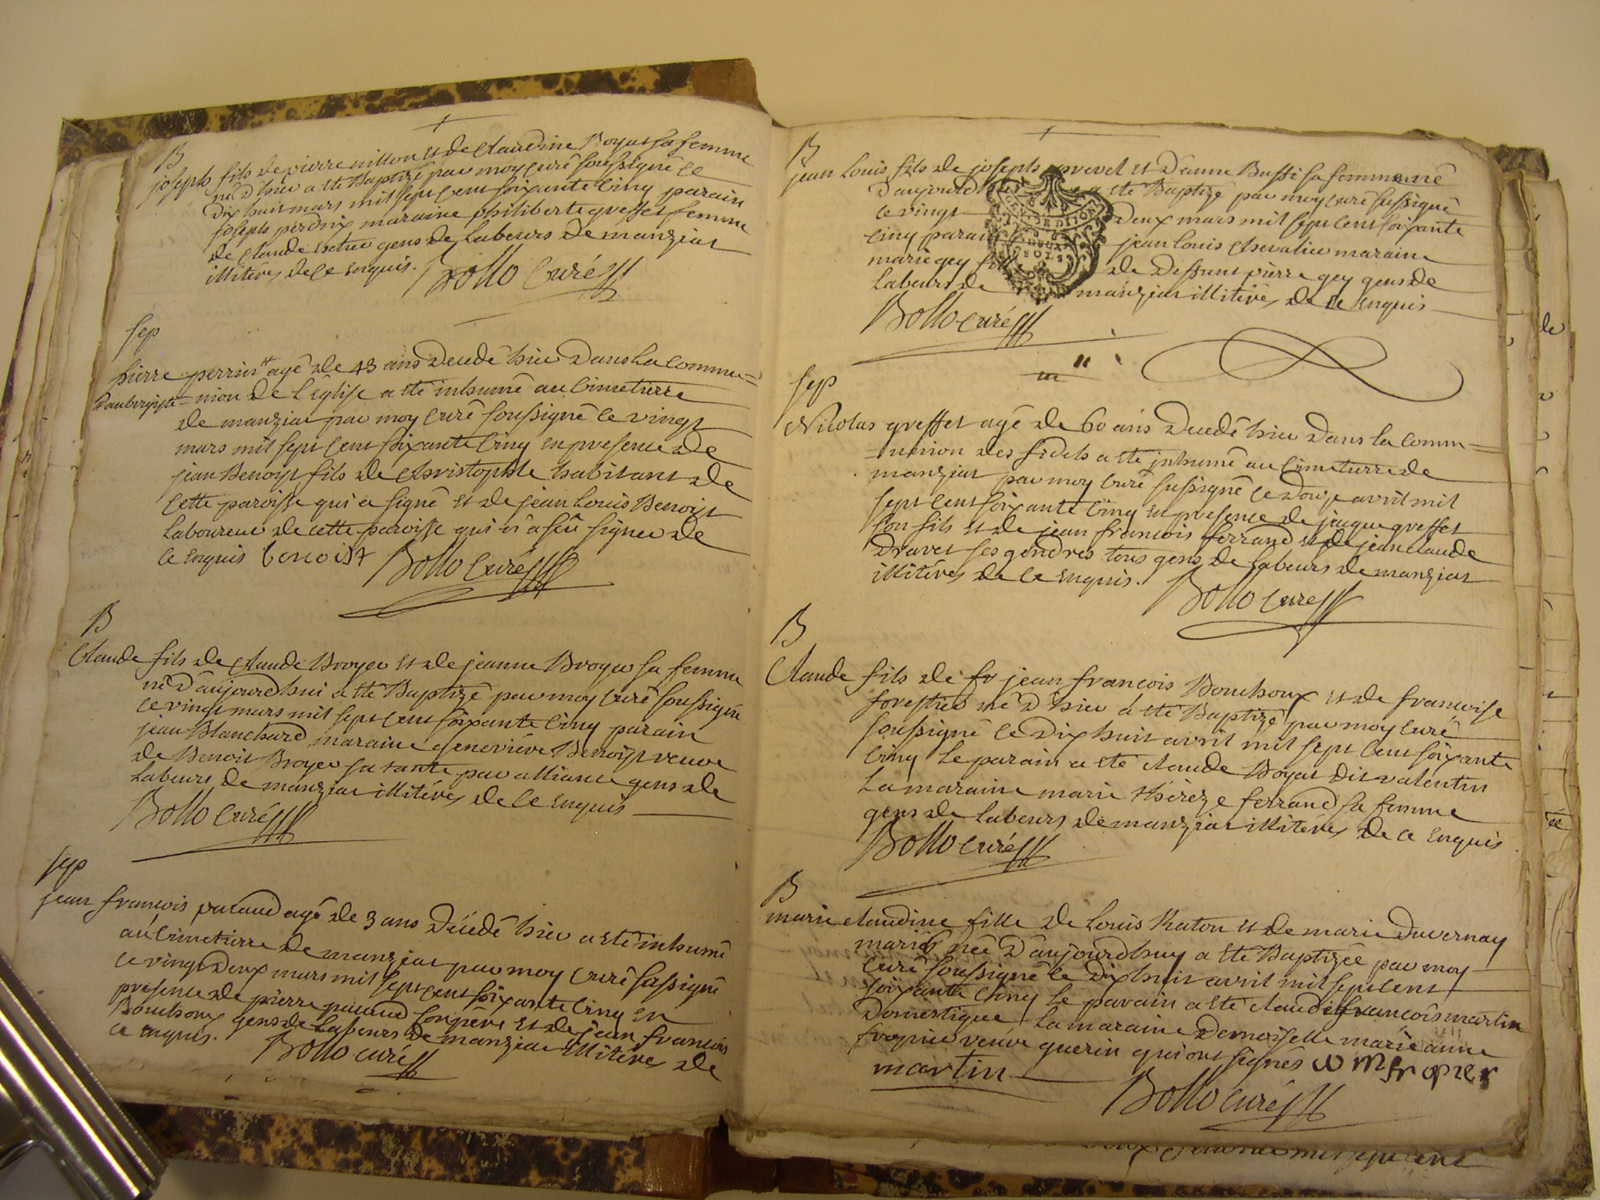 B
joseph fils de pierre nitton et de Claudine Boyat sa femme
né d'hier a été Baptizé par moy curé soussigné le
dix huit mars mil sept cent soixante cinq parain
joseph perdrix maraine philiberte greffet femme
de Claude gens de Labeurs de manziat
illitérés de ce enquis. Bollo Curé
sep
pierre perrin agé de 48 ans decedé hier dans la commu=
daubergiste =nion de L'église a été inhumé au Cimetierre
de manziat par moy curé soussigné ce vingt
mars mil sept cent soixante cinq en presence de
jean Benoist fils de Christophle habitant de
cette paroisse qui a signé et de jean Louis Benoist
Laboureur de cette paroisse qui n'a sçû signer de
ce enquis benoist Bollo Curé
B
Claude fils de Claude Broyer et de jeanne Broyer sa femme
né d'aujourdhui a été Baptizé par moy curé soussigné
ce vingt mars mil sept cent soixante cinq parain
jean Blanchard maraine Geneviève Benoist veuve
de Benoit Broyer sa tante par alliance gens de
Labeurs de manziat illitérés de ce enquis
Bollo curé
sep
jean françois pacaud agé de 3 ans décédé hier a été inhumé
au Cimetierre de manziat par moy curé soussigné
ce vingt deux mars mil sept cent soixante cinq en
presence de pierre pacaud son père et de jean francois
Bouchoux gens de Labeurs de manziat illitérés de
ce enquis. Bollo curé
B
jean Louis fils de joseph prevel et d'anne Butti sa femme né
d'aujourdhui a été Baptizé par moy curé sussigné
ce vingt deux mars mil sept cent soixante
cinq parain jean Louis Chevalier maraine
marie gey fille de deffunt pierre gey gens de
Labeurs de manziat illitérés de ce enquis
Bollo curé
sep
Nicolas greffet agé de 60 ans decedé hier dans la comm=
=union des fidels a été inhumé au Cimetierre de
manziat par moy curé sussigné ce douze avril mil
sept cent soixante cinq en presence de jaque greffet
son fils et de jean francois ferrand et de jean claude
dravet ses gendres tous gens de Labeurs de manziat
illitérés de ce enquis. Bollo curé
B
Claude fils de fr jean francois Bouchoux et de francoise
forestier né d'hier a été Baptizé par moy curé
soussigné ce dix huit avril mil sept cent soixante
cinq le parain a été claude Boyat dit valentin
La maraine marie thereze ferrand sa femme
gens de Labeurs de manziat illitérés de ce enquis
Bollo curé
B
marie claudine fille de Louis Raton et de marie Duvernay
mariés née d'aujourdhuy a été Baptizée par moy
curé soussigné le dix huit avril mil sept cent
soixante cinq le parain a été claude francois martin
domestique la maraine demoiselle marie anne
fropier veuve guerin qui ont signés m fropier
martin Bollo curé